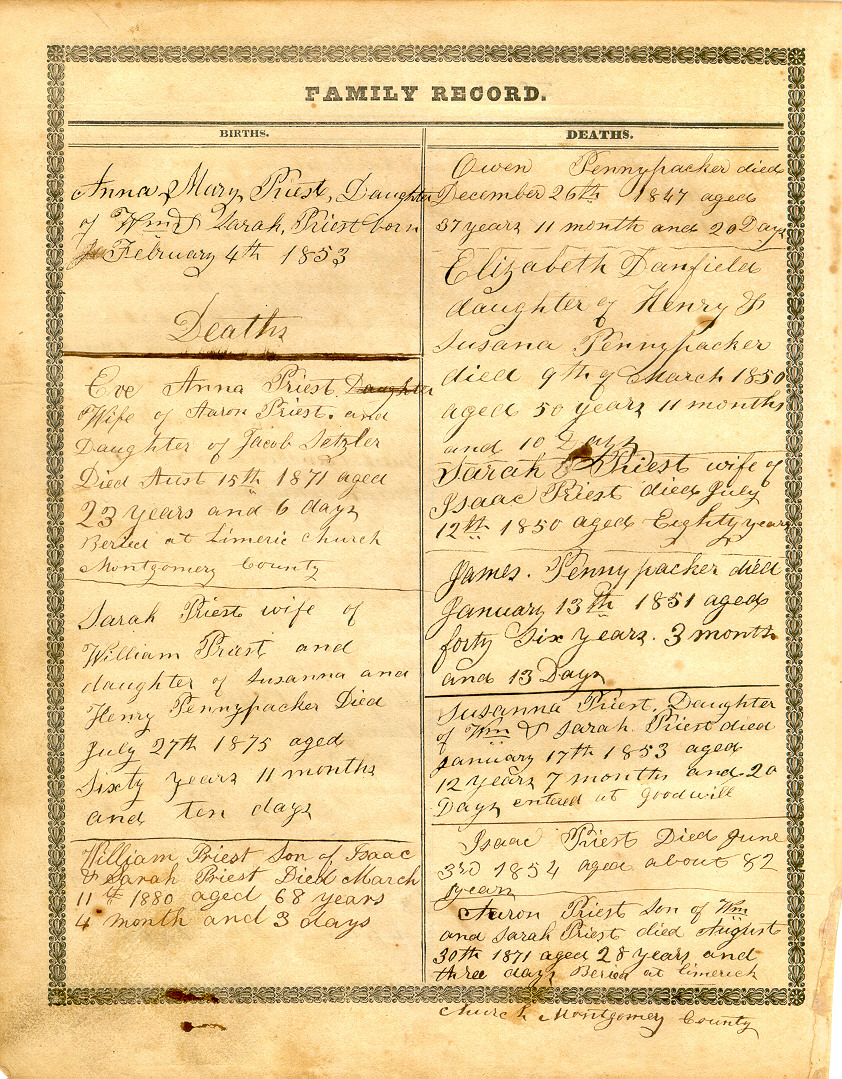 FAMILY RECORD.
BIRTHS.
Anna Mary Priest, Daughter
of Wm & Sarah, Priest born
February 4th 1853
Deaths
Eve Anna Priest Daughter
Wife of Aaron Priest. and
Daughter of Jacob Setzler
Died Aust 15th 1871 aged
23 years and 6 days
Beried at Limeric Church
Montgomery County
Sarah Priest wife of
William Priest and
daughter of Susanna and
Henry Pennypacker Died
July 27th 1875 aged
Sixty years 11 months
and ten days
William Priest Son of Isaac
& Sarah Priest Died March
11th 1880 aged 68 years
4 month and 3 days
DEATHS.
Owen Pennypacker died
December 26th 1847 aged
37 years 11 month and 20 Days
Elizabeth Danfield
daughter of Henry &
Susana Pennypacker
died 9th of March 1850
aged 50 years 11 months
and 10 Days
Sarah Priest wife of
Isaac Priest died July
12th 1850 aged Eighty years
James. Pennypacker died
January 13th 1851 aged
forty Six years. 3 month
and 13 Days
Susanna Priest, Daughter
of Wm & Sarah Priest died
January 17th 1853 aged
12 years 7 months and 20
Days entered at goodwill
Isaac Priest Died June
3rd 1854 aged about 82
years
Aaron Priest Son of Wm
and Sarah Priest died August
30th 1871 aged 28 years and
three days Beried at limerick
church Montgomery County